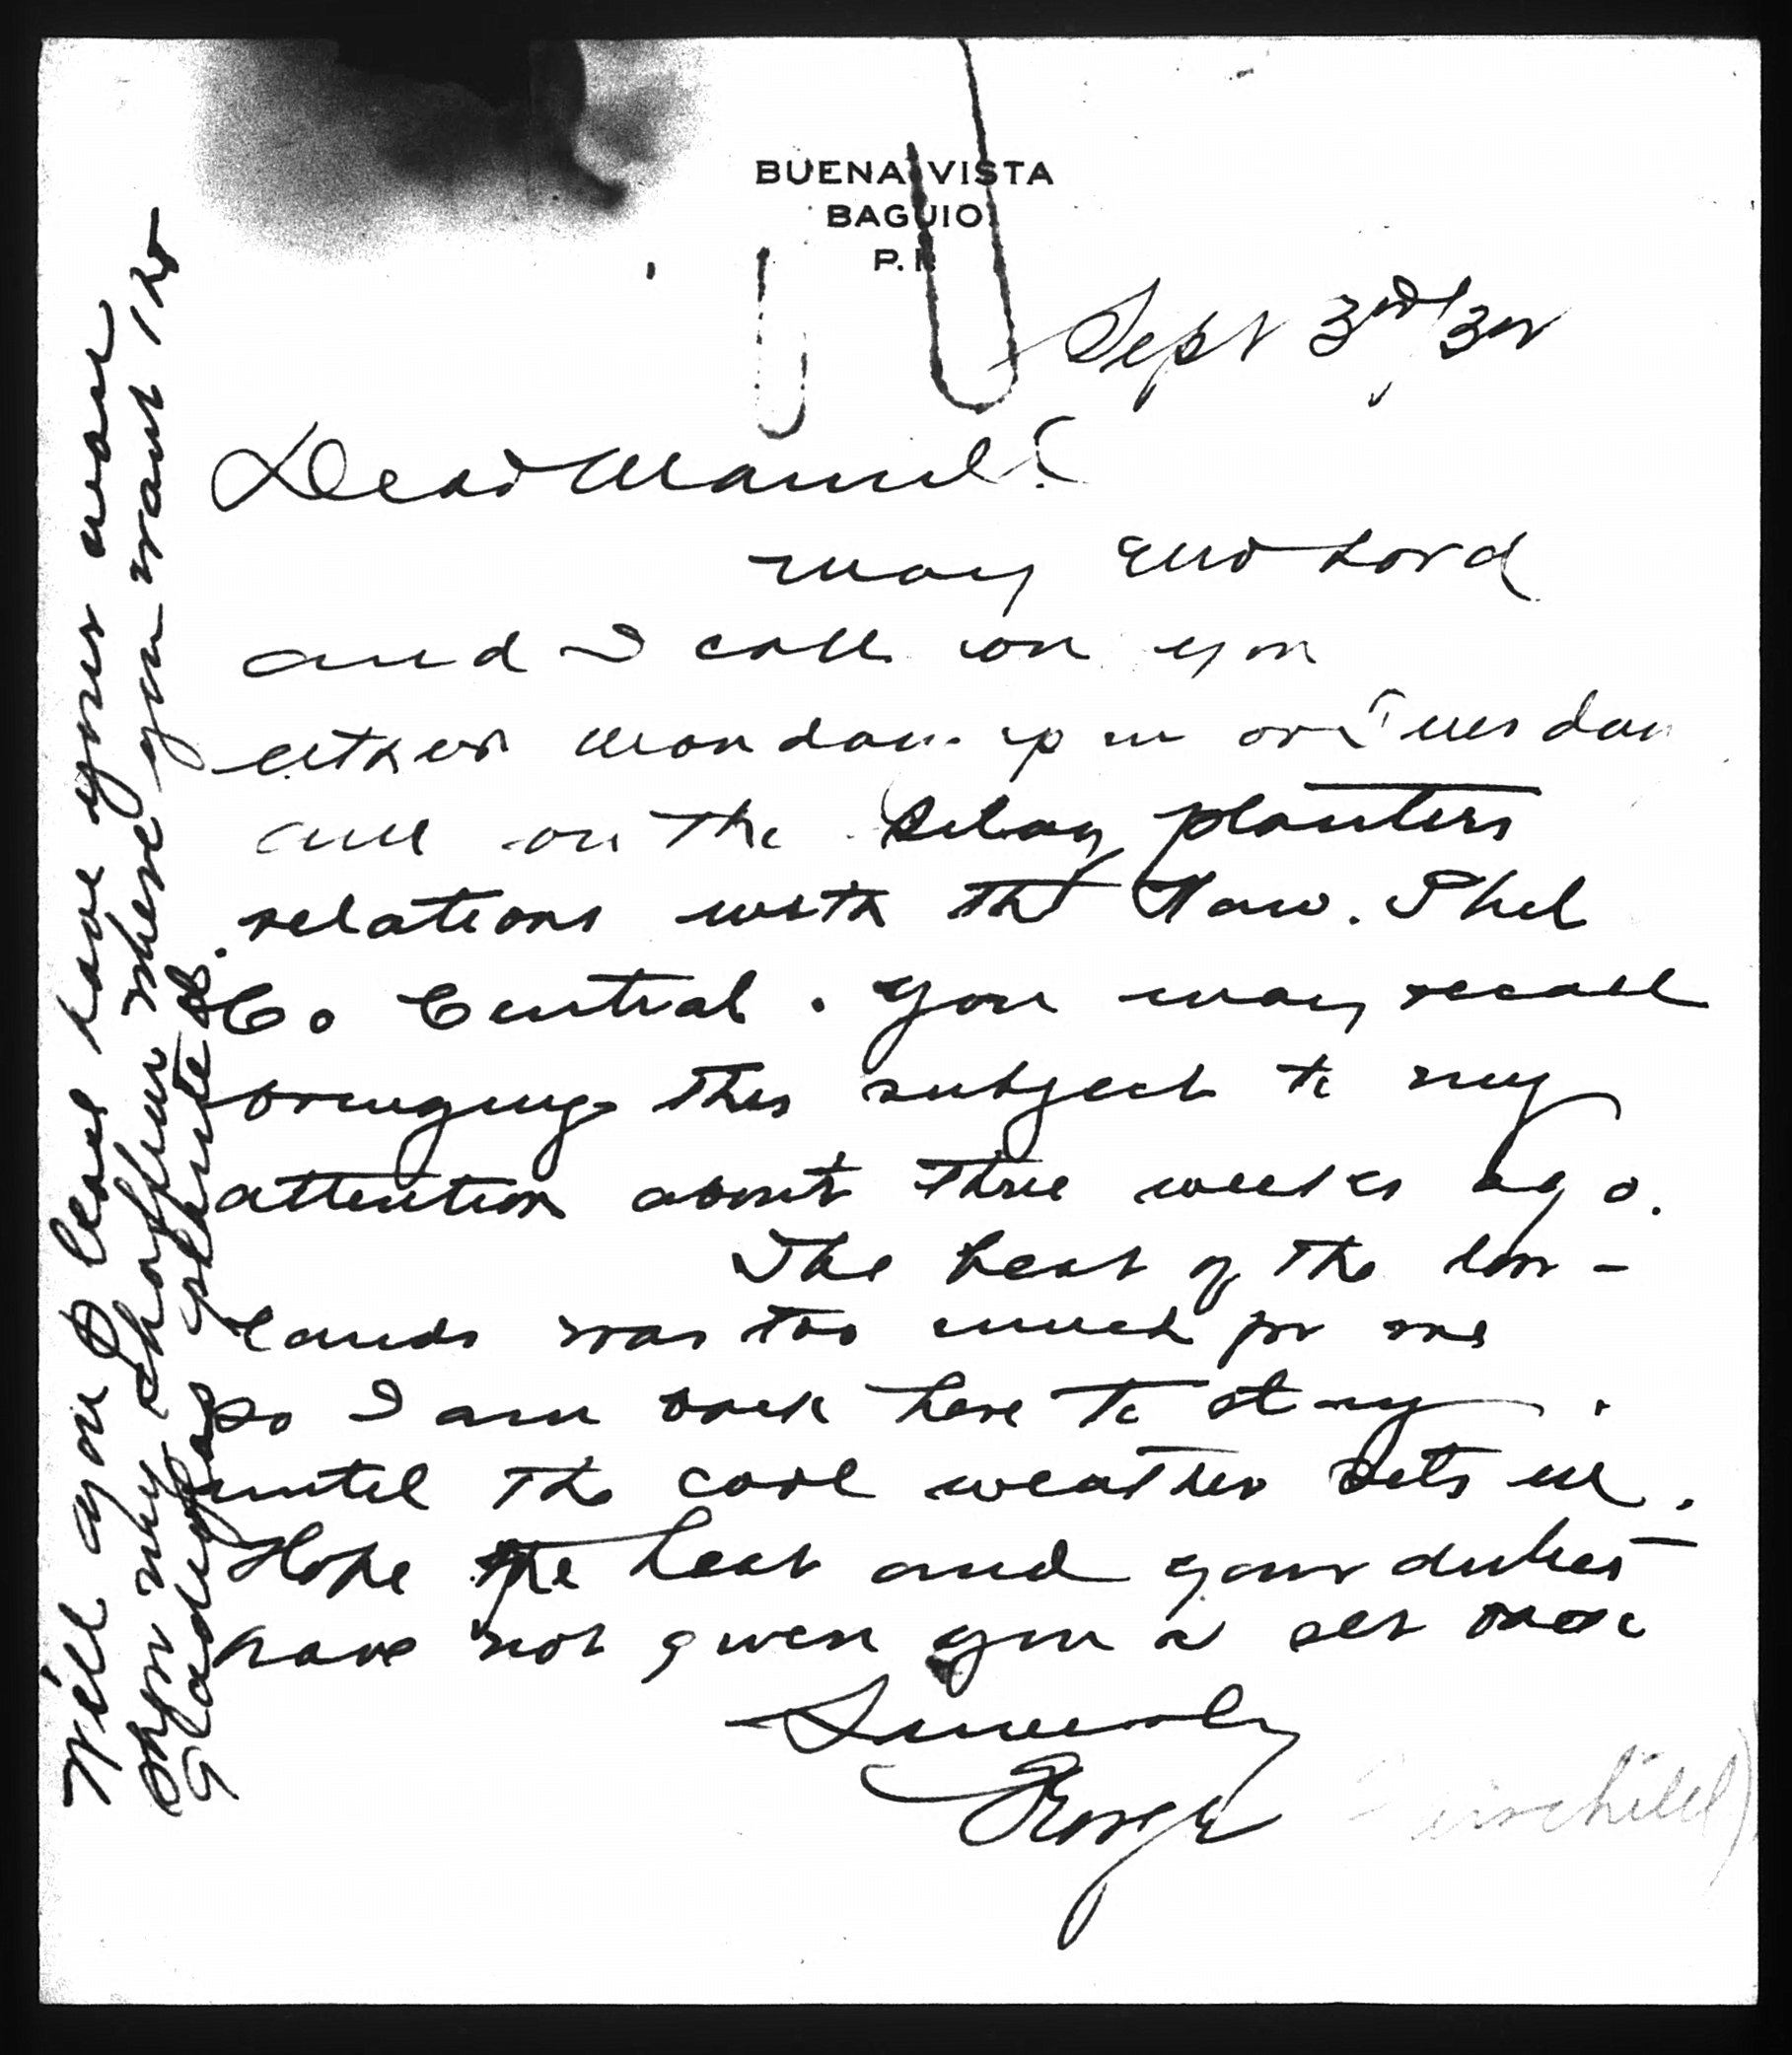 BUENA VISTA
BAGUIO
P. I.
Sept 3rd/32
Dear Manuel:
May and Lord
and I call on you
either Monday p m or Tuesday
a m on the Silay planters
relations with the Haw. Phil
Co Central. You may recall
bringing this subject to my
attention about three weeks ago.
The heat of the low-
lands was too much for me
so I am back here to stay
until the cool weather sets in.
Hope the heat and your duties
have not given you a set back
Sincerely
George
Fairchild)
Will you please have your man
my chauffeur where you want it
Gladys